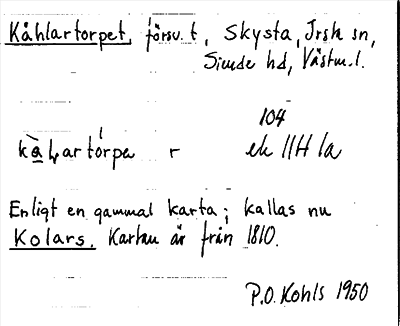 Kåhlartorpet, försv. t, Skysta, Irsta sn,
Siende hd, Västm. l.
104
kàļartórpa r ek 11H 1a
Enligt en gammal karta; kallas nu
Kolars. Kartan är från 1810.
P.O. Kohls 1950